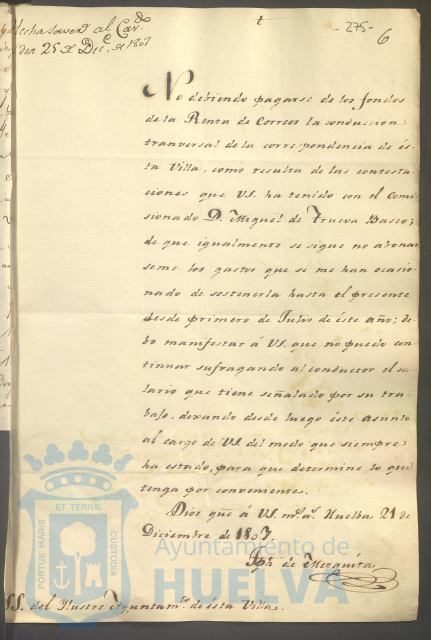 hecha saver al Cav.do
en 25 de Dic.e de 1807
- 275 -
6
No debiendo pagarse de los fondos
de la Renta de Correos la conduccion
tranversal de la correspendencia de és-
ta Villa, como resulta de las contesta-
ciones que VS. ha tenido con el Comi-
sionado D. Miguel de Trueva Basco;
de que igualmente se sigue no abonar-
seme los gastos que se me han ocasio-
nado de sostenerla hasta el presente
desde primero de Julio de éste año; de-
bo manifestar á VS. que no puedo con-
tinuar sufragando al conductor el sa-
lario que tiene señalado por su tra-
bajo, dexando desde luego éste asunto
al cargo de VS. del modo que siempre
ha estado, para que determine lo que
tenga por conveniente.
Dios gue á VS. m.s a.s Huelba 21 de
Diciembre de 1807.
Jph de Mezquita
SS. del Ilustre Ayuntam.to de ésta Villa.
Ayuntamiento de
HUELVA
PORTUS MARIS
ET TERRÆ
CUSTODIA